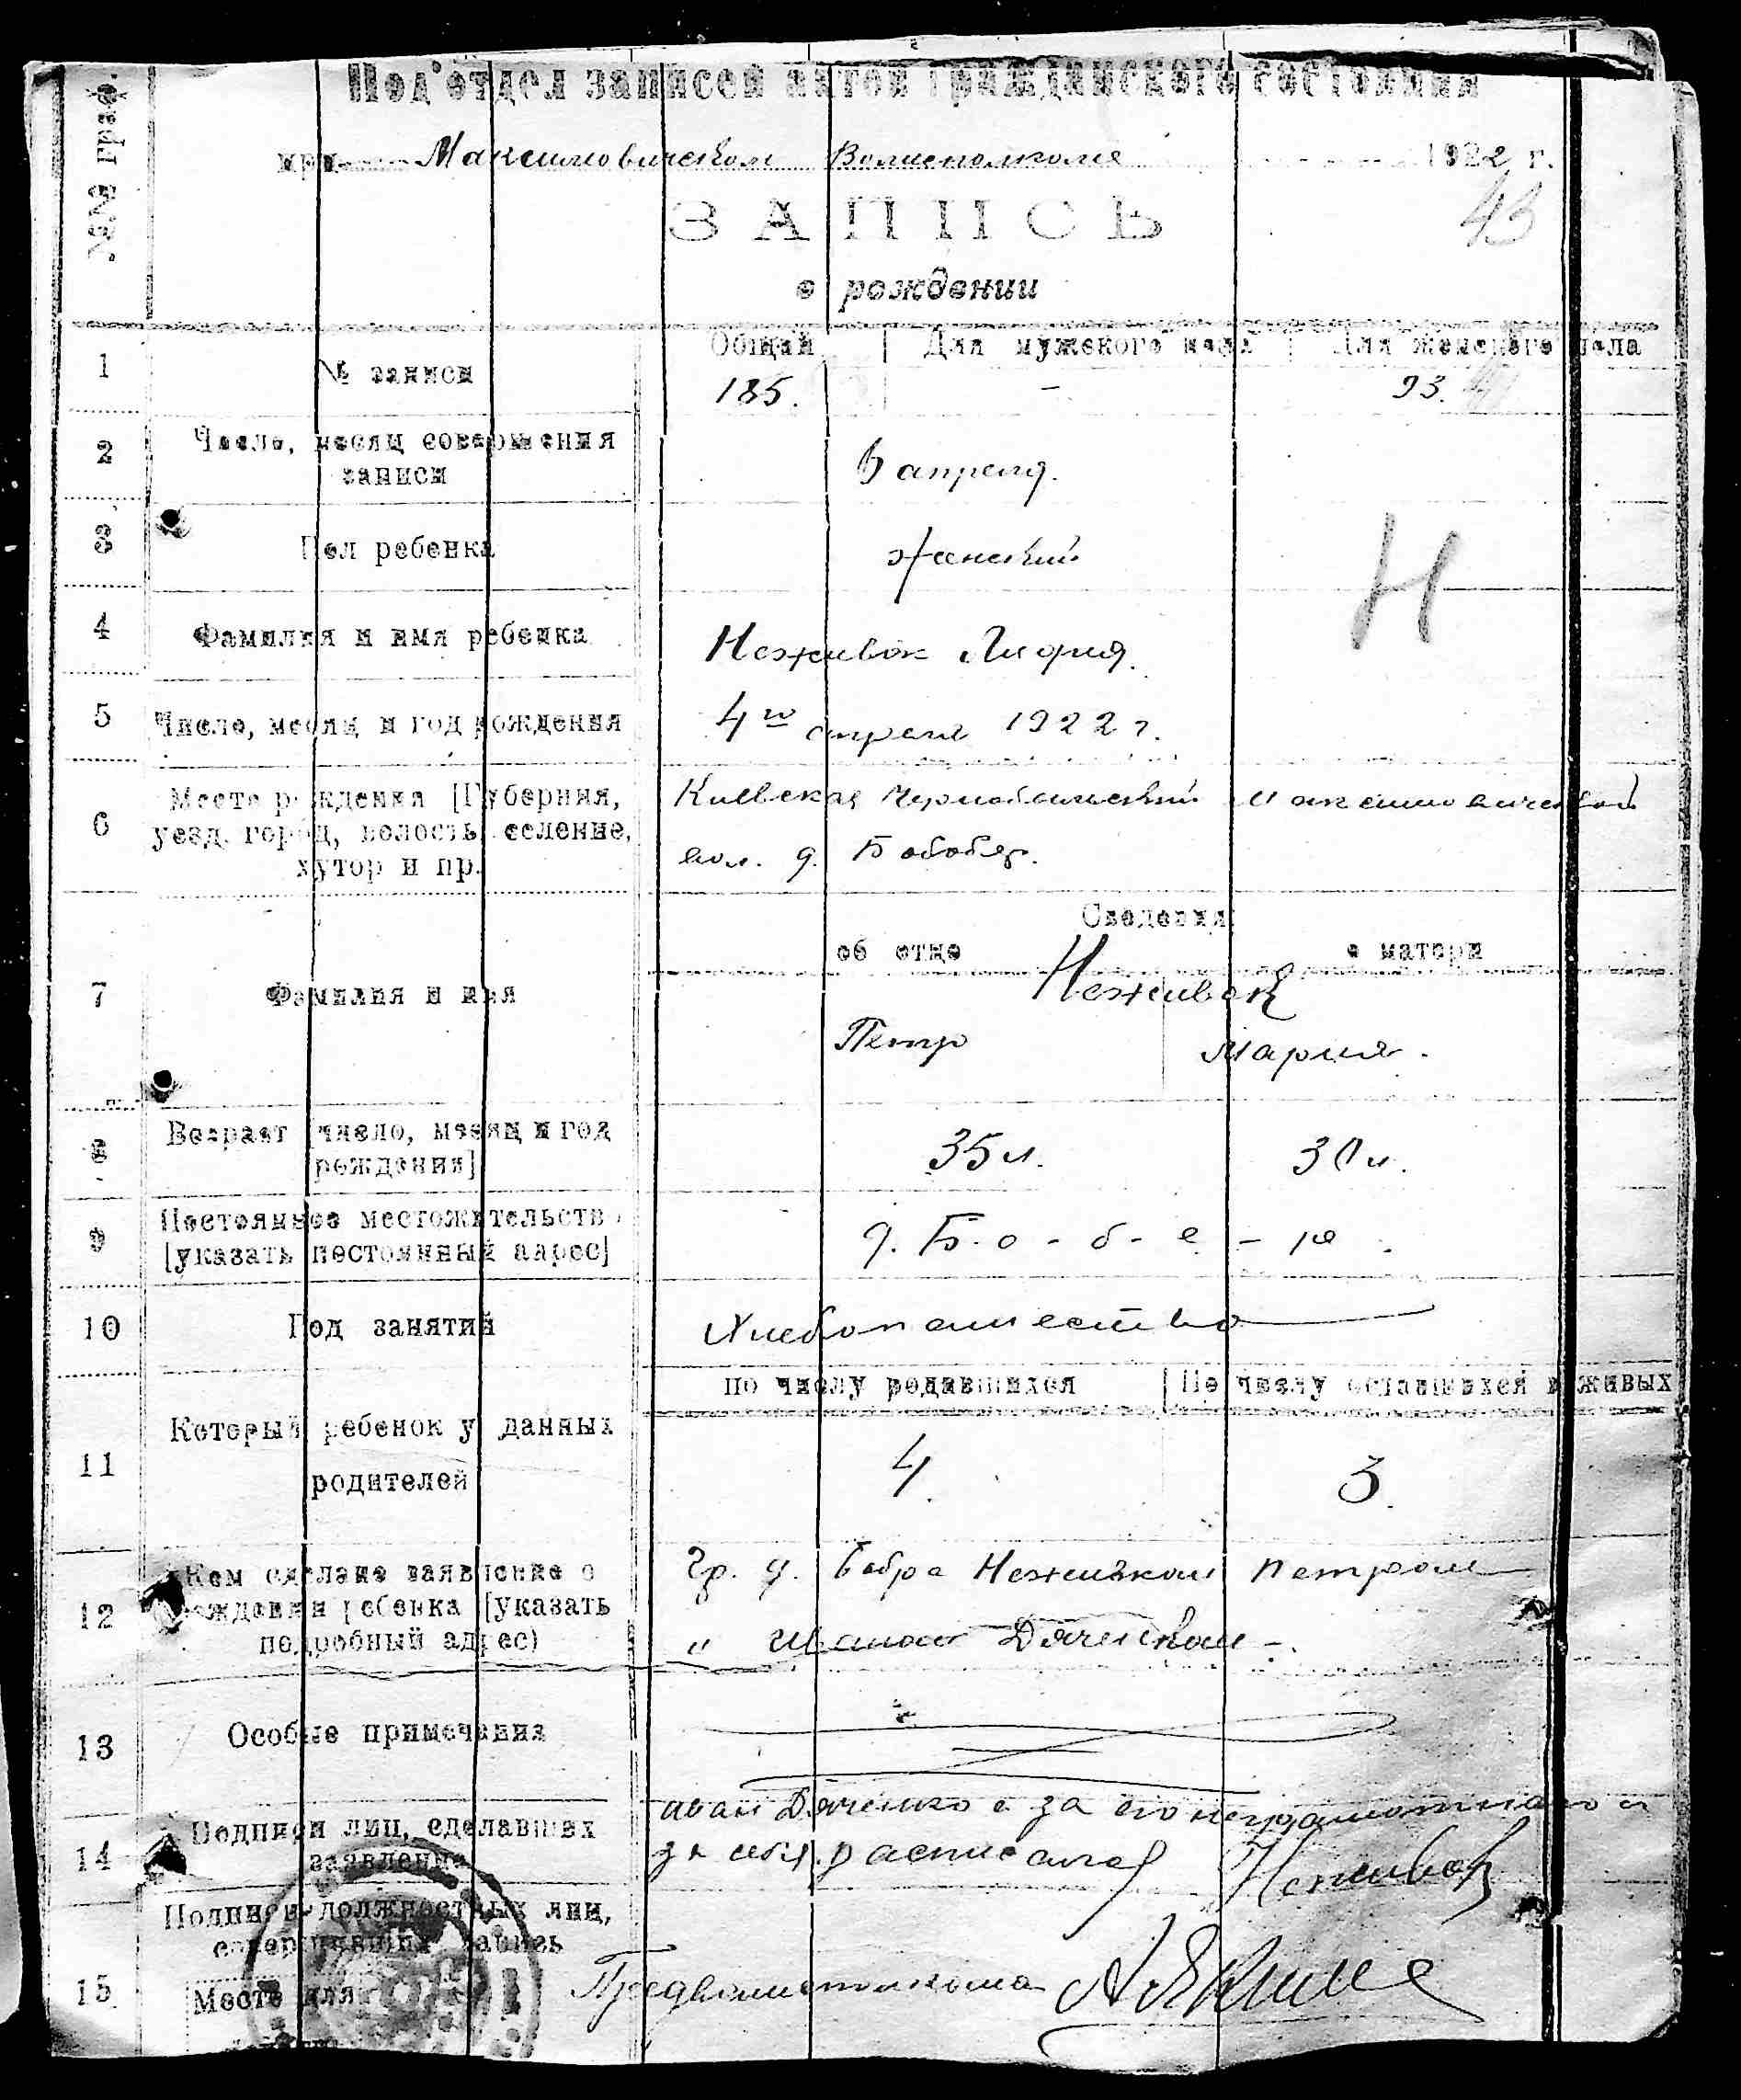 №№ граф.
Под'отдел записей актов гражданского состояния
при Максимовическом Волисполкоме 1922 г.
43
ЗАПИСЬ
о рождении
Общий Для мужского пола Для женского пола
1 № записи 185. - 93.
2 Число, месяц совершения
записи
6 апреля.
3 Пол ребенка женский
Н
4 Фамилия и имя ребенка Неживок Лидия.
5 Число, месяц и год рождения 4го апреля 1922 г.
6 Место рождения [Губерния,
уезд, город, волость, селение,
хутор и пр.
Киевская Чернобыльский Максимовической
вол. д.
Сведения:
об отце о матери
7 Фамилия и имя Неживок
Петр Мария.
8 Возраст [число, месяц и год
рождения]
35 л. 30 л.
9 Постоянное местожительство
[указать постоянный адрес]
д. Б-о-б-е-р.
10 Род занятий Хлебопашество
по числу родившихся По числу оставшихся в живых
11 Который ребенок у данных
родителей
4. 3.
12 Кем сделано заявление о
рождении ребенка [указать
подробный адрес)
Гр. д. Бобра Неживком Петром
" Иваном Дяченком -.
13 Особые примечания
14 Подписи лиц, сделавших
заявление
Иван Дяченко а за его неграмотного и
за себя расписался Неживок
15 Подписи должностных лиц,
совершивших запись
Место для
Предволисполкома